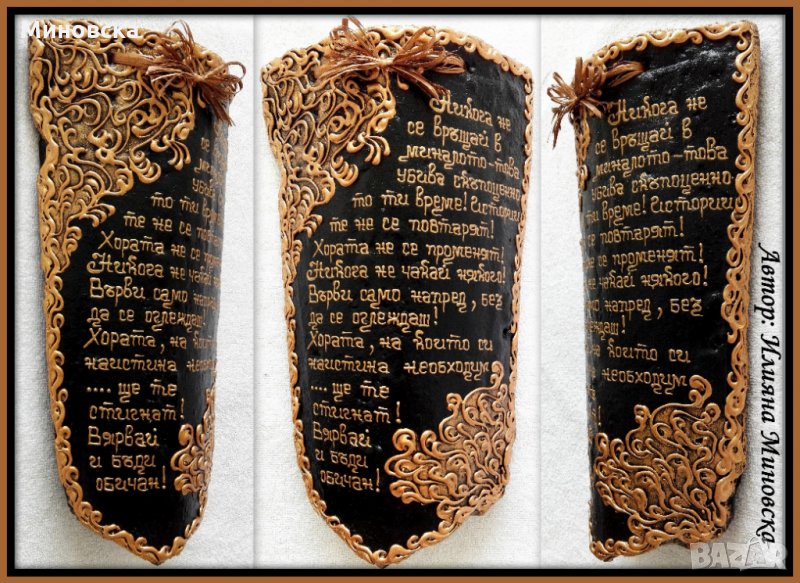 Миновска
то ти врем
те не се повта
Хората не се п
Никога не чака
Върви само напр
да се оглеждаш!
Хората, на кои
наистина необ
.... ще те
стигнат!
Вярвай
и бъди
обичан!
Никога не
се връщай в
миналото-това
убива скъпоценно
то ти време! Истории
те не се повтарят!
Хората не се променят!
Никога не чакай някого!
Върви само напред, без
да се оглеждаш!
Хората, на които си
наистина необходим
.... ще те
стигнат!
Вярвай
и бъди
обичан!
Никога не
се връщай в
миналото-това
убива скъпоценно
ти време! Истории
не се повтарят!
не се променят!
не чакай някого!
напред, без
оглеждаш!
на които си
необходим
Автор: Илияна Миновска
BAZAR